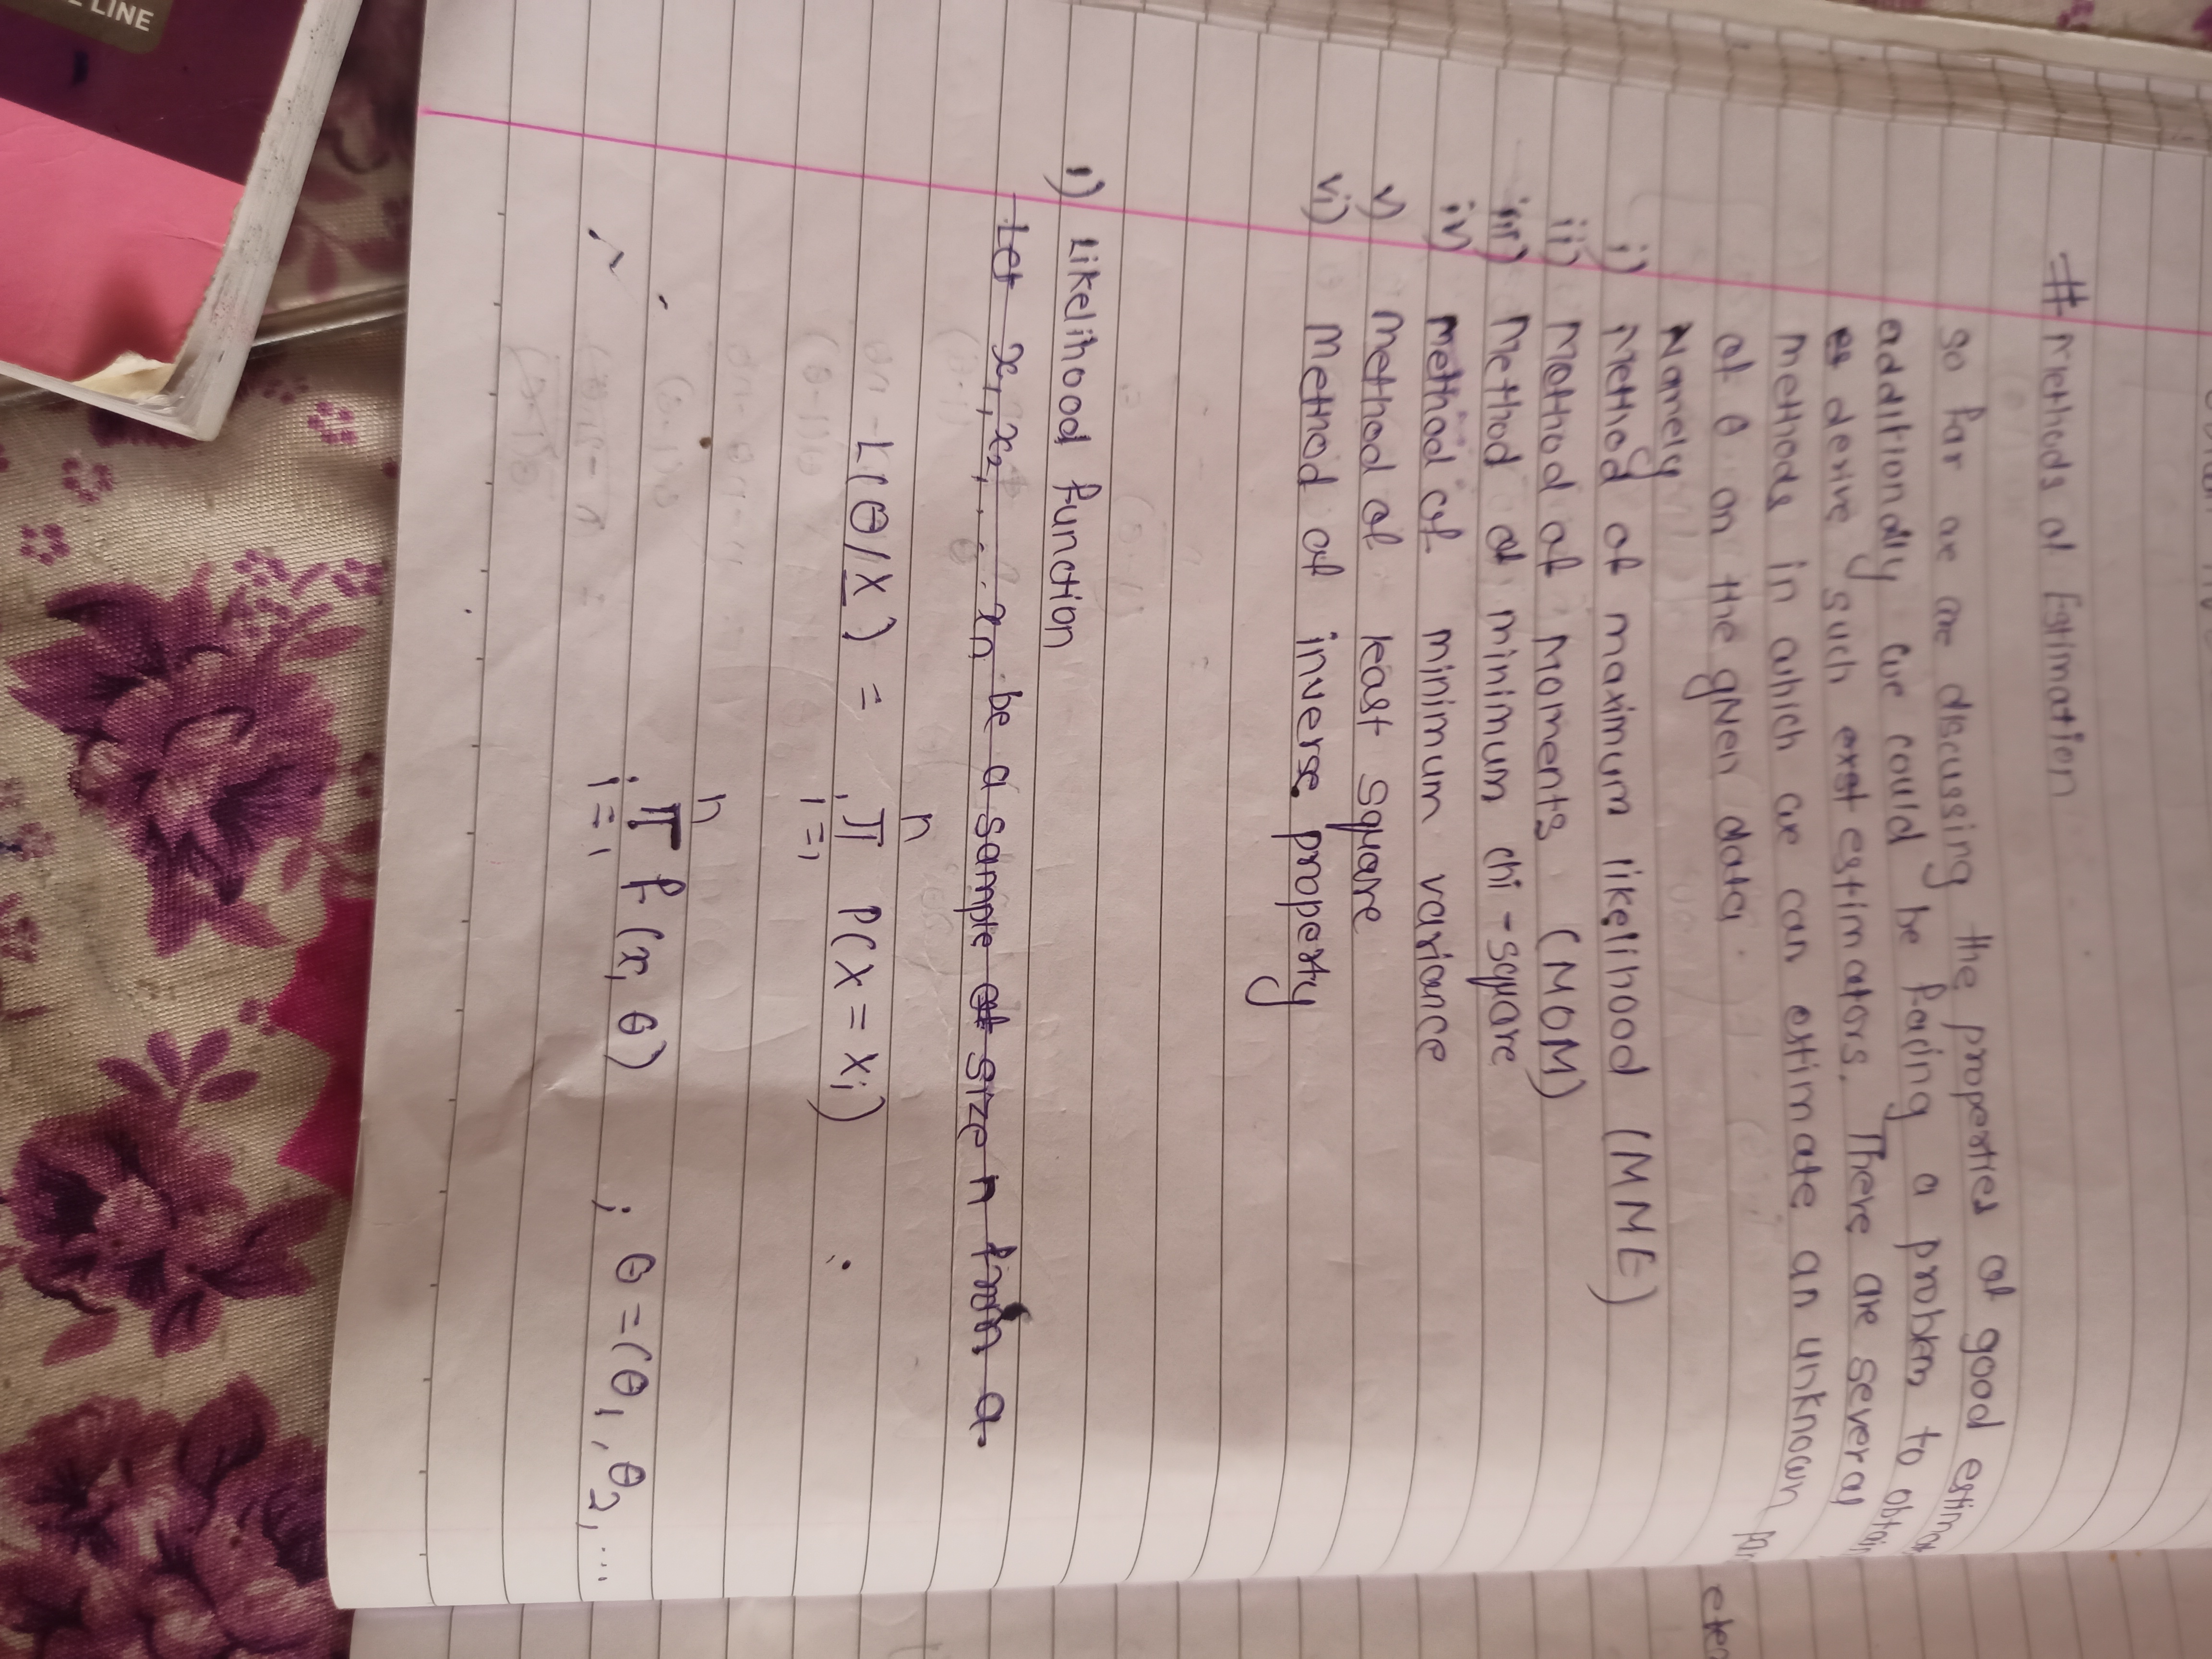 # Methods of Estimation
so far we are discussing the properties of good
eadditionally we could be facing a problem to obtain
derive such estimators. There are several
methods in which we can estimate an unknown
of θ on the given data.
Namely
i) Method of maximum likelihood (MME)
ii) Method of Moments (MOM)
iii) Method of minimum chi-square
iv) method of minimum variance
v) method of least square
vi) Method of inverse property
1) Likelihood Function
Let x₁, x₂, . . . xn be a sample of size n from a
L(θ/X) = n
π P(X = xi)
i=1
n
π f(x, θ) ; θ = (θ₁, θ₂, ...
i=1
LINE